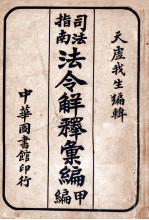 天虛我生編輯
司法
指南
法令解釋彙編甲編
中華圖書館印行